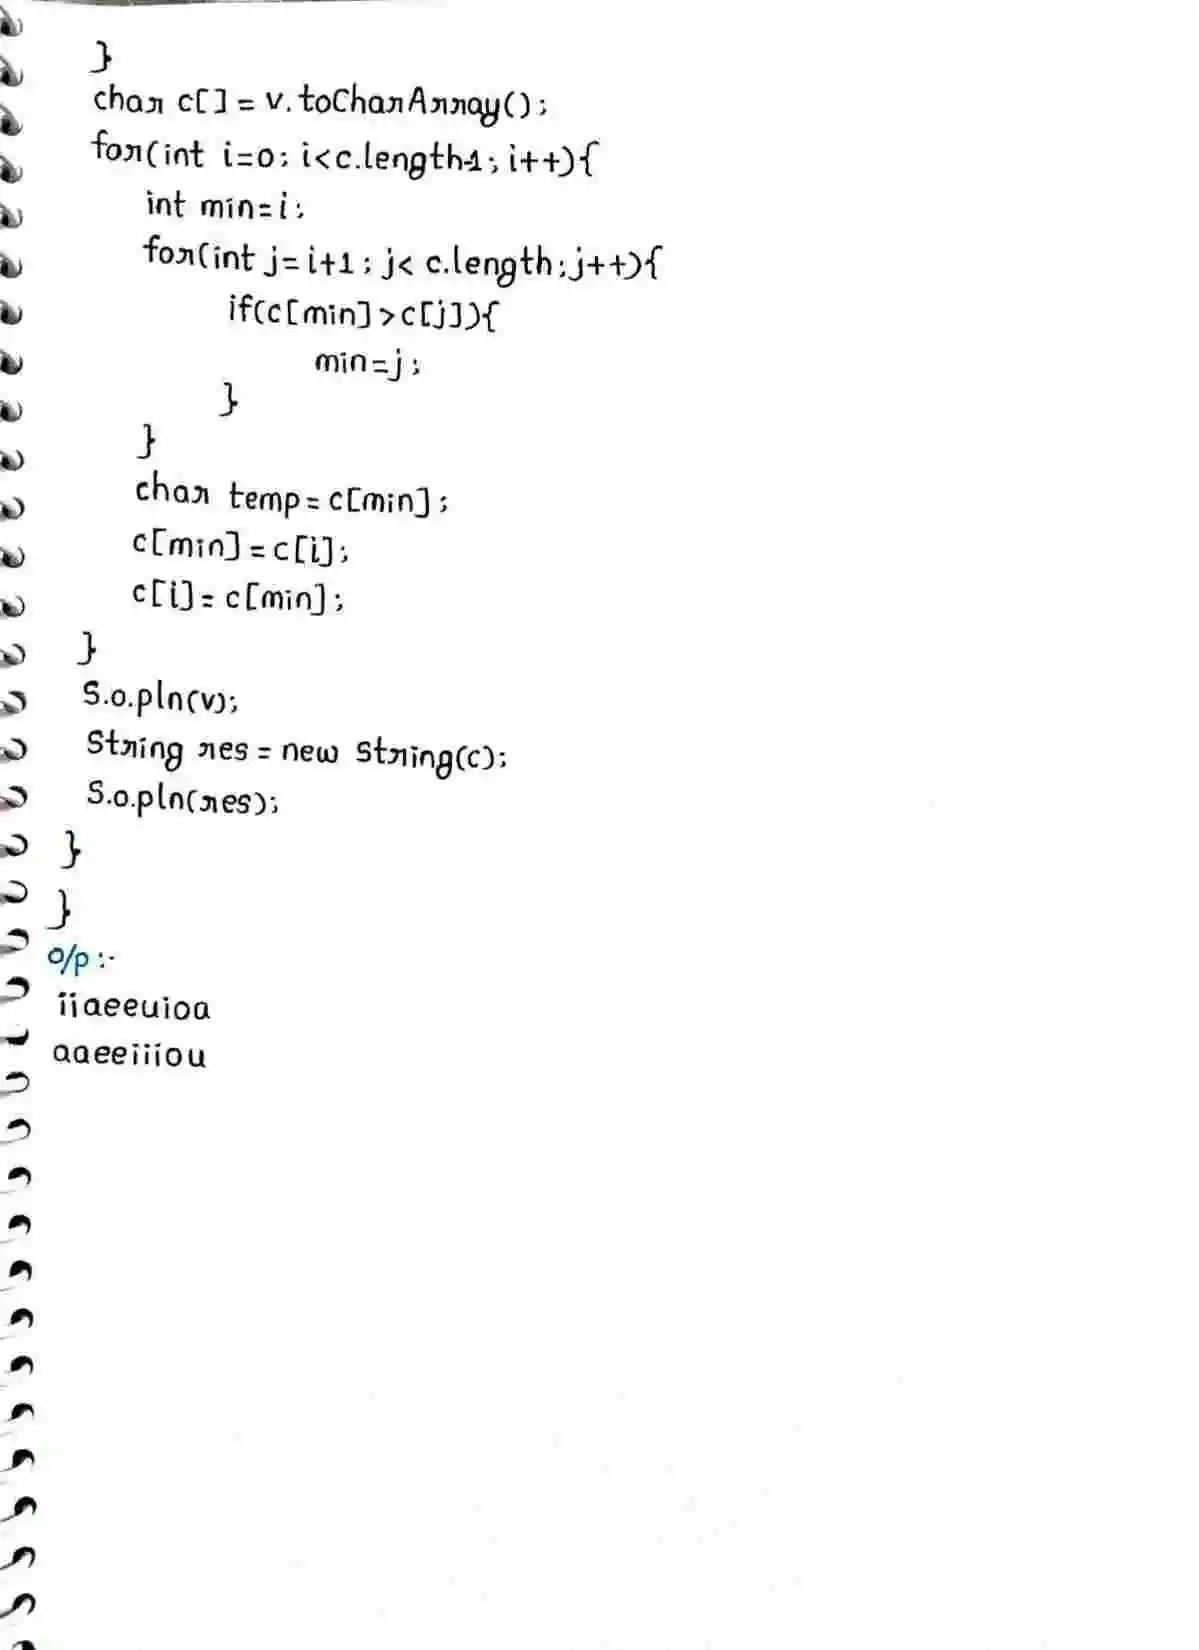 }
char c[] = v.toCharArray();
for(int i=0; i<c.length-1; i++){
int min=i;
for(int j=i+1; j< c.length;j++){
if(c[min]>c[j]){
min=j;
}
}
char temp=c[min];
c[min]=c[i];
c[i]=c[min];
}
S.o.pln(v);
String res = new String(c);
S.o.pln(res);
}
}
o/p:-
iiaeeuioa
aaeeiiiou